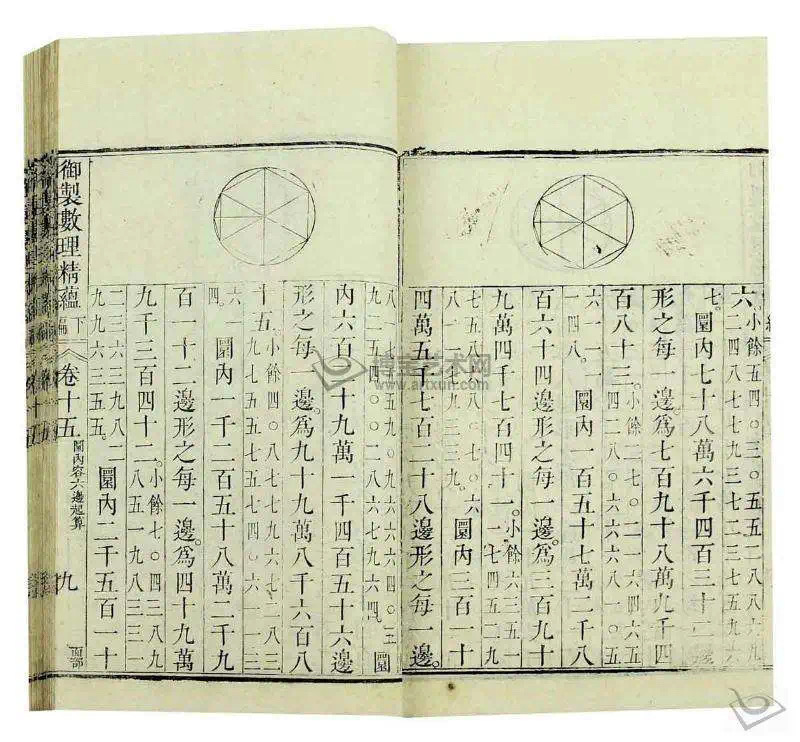 六小餘五四〇三〇五五二八八六九
六二四八七七九三七二三七五九六
七。圜內七十八萬六千四百三十二邊
形之每一邊爲七百九十八萬九千四
百八十三。小餘二七〇二一六四六五
圜內一百五十七萬二千八
百六十四邊形之每一邊爲三百九十
九萬四千七百四十一。小餘六三五一
圜內三百一十
四萬五千七百二十八邊形之每一邊。
圜
內六百二十九萬一千四百五十六邊
形之每一邊爲九十九萬八千六百八
十五。
四。圜內一千二百五十八萬二千九
百一十二邊形之每一邊爲四十九萬
九千三百四十二。小餘七〇四三八九
八五一九八三三一
二三六三三九八二
九九六三五五。圜內二千五百一十
御製數理精蘊 下編 卷十五 圜內容六邊起算 九 面部
博宝艺术网
www.artxun.com